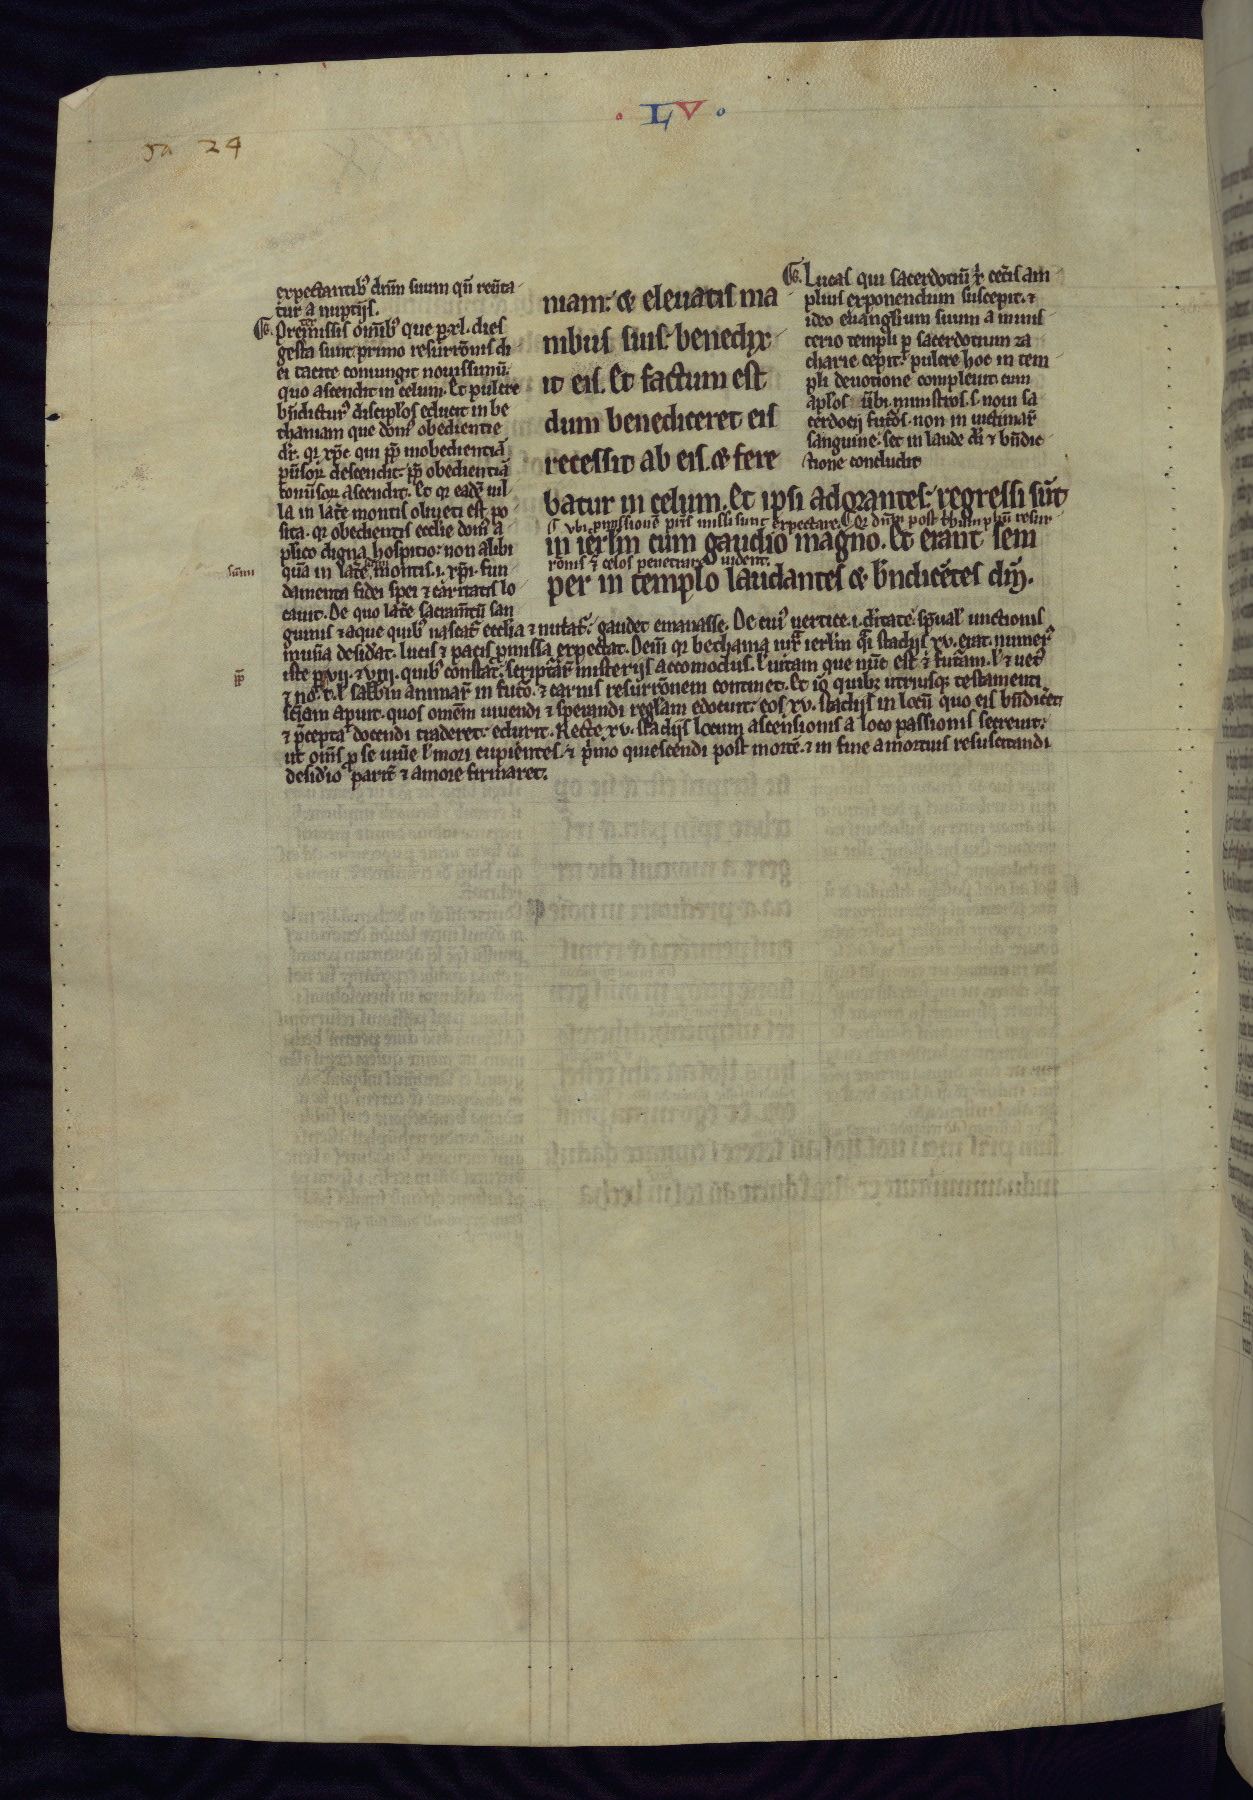 · L V ·
sa 24
expectantib' dnm suum qn reuta
tur a nuptijs.
Premissis omib' que p xl. dies
gesta sunt primo resurronis di
ei tacite coniungit nouissimu
quo ascendit in celum. Et pulcre
bndictur' discip'los educit in be
thaniam que dom' obedientie
dr. qr xpc qui pp inobedientia
puersor descendit. pp obedientia
conuersor ascendit. Et qr eade uil
la in latere montis oliueti est po
sita. qr obedientis ecclie dom' a
plico digna hospitio: non alibi
qua in latere summi montis .i. xpi. fun
damenta fidei spei & caritatis lo
cauit. De quo latere sacramtu san
guinis & aque quib' nascat ecclia & nutrat: gaudet emanasse. De cui' uertice .i. diuitate spual' unctionis
munia desiderat. lucis & pacis pmissa expectat. Dein qr bethania iux ierlm qsi stadijs xv. erat. numer'
iste p vii. & viii. quib' constat. scriptar misterijs accomodus. l' uitam que nunc est & futuram. l' & uet'
& nouum l' sabbm animar in futo. & carnis resurronem continet. Et io quib; utriusq; testamenti
sciam apuit. quos omem uiuendi & sperandi reglam edocuit: eos xv. stadijs in locu quo eis bndicet
& pcepta docendi traderet: eduxit. Recte xv. stadijs locum ascensionis a loco passionis secreuit:
ut oms p se uiue l' mori cupientes. & pmo quiescendi post morte. & in fine a mortuis resuscitandi
desid'io parit & amore firmaret.
summ
niam: & eleuatis ma
nibus suis: benedix
it eis. Et factum est
dum benediceret eis
recessit ab eis. & fere
batur in celum. Et ipsi adorantes: regressi sut
s. ubi pmissione pris missi sunt expectare. Qr dnm post thriumphu resur
in ierlm cum gaudio magno. Et erant sem
ronis & celos penetrare uident.
per in templo laudantes & bndicetes dm.
Lucas qui sacerdotiu xi ceteris am
plius exponendum suscepit. &
ideo euanglium suum a minis
terio templi p sacerdotium za
charie cepit: pulcre hoc in tem
pli deuotione compleuit. cum
aplos ubi. ministros. s. noui sa
cerdocij futos. non in uictimar
sanguine: set in laude di & bndic
tione concludit